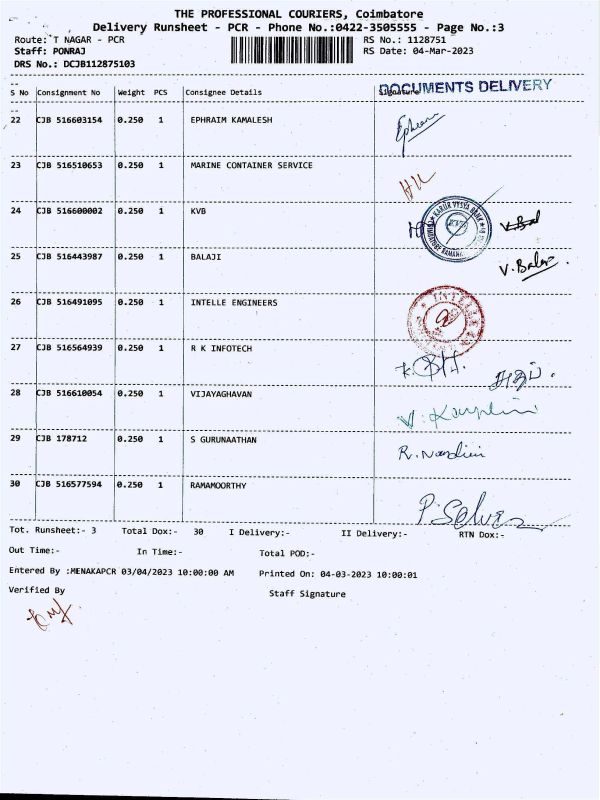 THE PROFESSIONAL COURIERS, Coimbatore
Delivery Runsheet - PCR - Phone No.:0422-3505555 - Page No.:3
Route: T NAGAR - PCR RS No.: 1128751
Staff: PONRAJ RS Date: 04-Mar-2023
DRS No.: DCJB112875103
S No Consignment No Weight PCS Consignee Details Signature DOCUMENTS DELIVERY
22 CJB 516603154 0.250 1 EPHRAIM KAMALESH Ephraim
23 CJB 516510653 0.250 1 MARINE CONTAINER SERVICE
24 CJB 516600002 0.250 1 KVB KARUR VYSYA BANK V.Bal
25 CJB 516443987 0.250 1 BALAJI V.Balaz.
26 CJB 516491095 0.250 1 INTELLE ENGINEERS
27 CJB 516564939 0.250 1 R K INFOTECH
28 CJB 516610054 0.250 1 VIJAYAGHAVAN
29 CJB 178712 0.250 1 S GURUNAATHAN R. Nandini
30 CJB 516577594 0.250 1 RAMAMOORTHY P. Selve
Tot. Runsheet:- 3 Total Dox:- 30 I Delivery:- II Delivery:- RTN Dox:-
Out Time:- In Time:- Total POD:-
Entered By :MENAKAPCR 03/04/2023 10:00:00 AM Printed On: 04-03-2023 10:00:01
Verified By Staff Signature